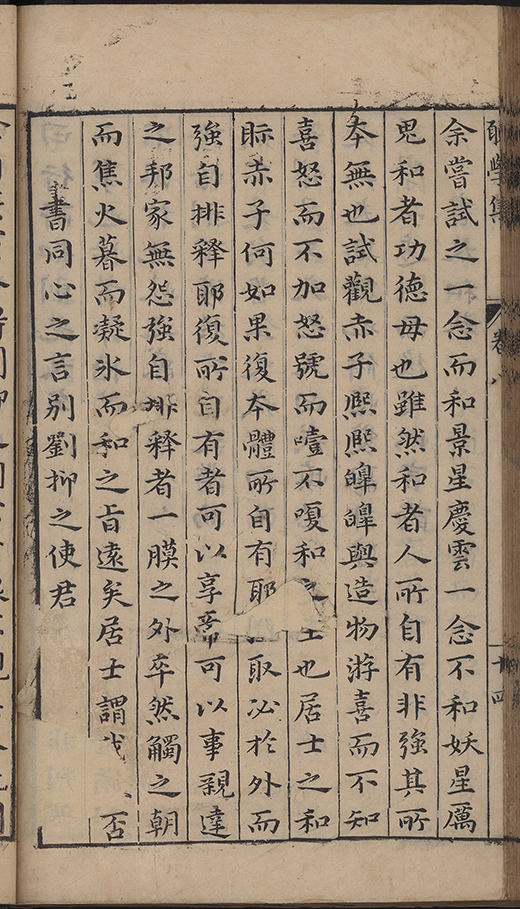 卷八
十四
余嘗試之一念而和景星慶雲一念不和妖星厲
鬼和者功德母也雖然和者人所自有非強其所
本無也試觀赤子熈熈皞皞與造物游喜而不知
喜怒而不加怒號而噎不嗄和之至也居士之和
眎赤子何如果復本體所自有耶 取必於外而
強自排釋耶復所自有者可以享帝可以事親達
之邦家無怨強自排释者一膜之外卒然觸之朝
而焦火暮而凝氷而和之旨遠矣居士謂 否
書同心之言別劉抑之使君